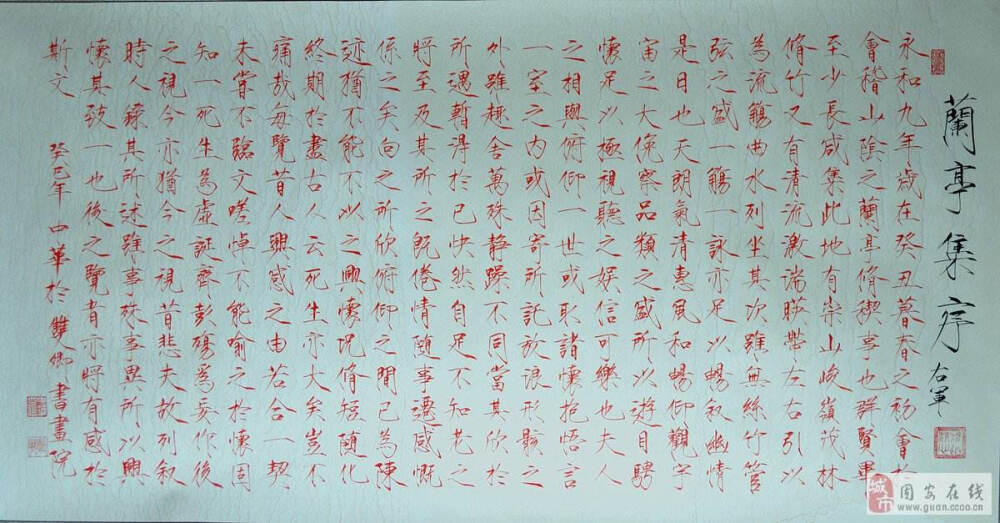 蘭亭集序 右軍
永和九年歲在癸丑暮春之初會於
會稽山陰之蘭亭脩禊事也群賢畢
至少長咸集此地有崇山峻嶺茂林
脩竹又有清流激湍暎帶左右引以
為流觴曲水列坐其次雖無絲竹管
弦之盛一觴一詠亦足以暢叙幽情
是日也天朗氣清惠風和暢仰觀宇
宙之大俯察品類之盛所以遊目騁
懷足以極視聽之娛信可樂也夫人
之相與俯仰一世或取諸懷抱悟言
一室之内或因寄所託放浪形骸之
外雖趣舍萬殊静躁不同當其欣於
所遇暫得於己快然自足不知老之
將至及其所之既倦情隨事遷感慨
係之矣向之所欣俯仰之間已為陳
迹猶不能不以之興懷況脩短隨化
終期於盡古人云死生亦大矣豈不
痛哉每覽昔人興感之由若合一契
未嘗不臨文嗟悼不能喻之於懷固
知一死生為虛誕齊彭殤為妄作後
之視今亦猶今之視昔悲夫故列叙
時人錄其所述雖事殊事異所以興
懷其致一也後之覽者亦將有感於
斯文 癸巳年 中華於雙卿書畫院
城市 固安在线
www.guan.ccoo.cn